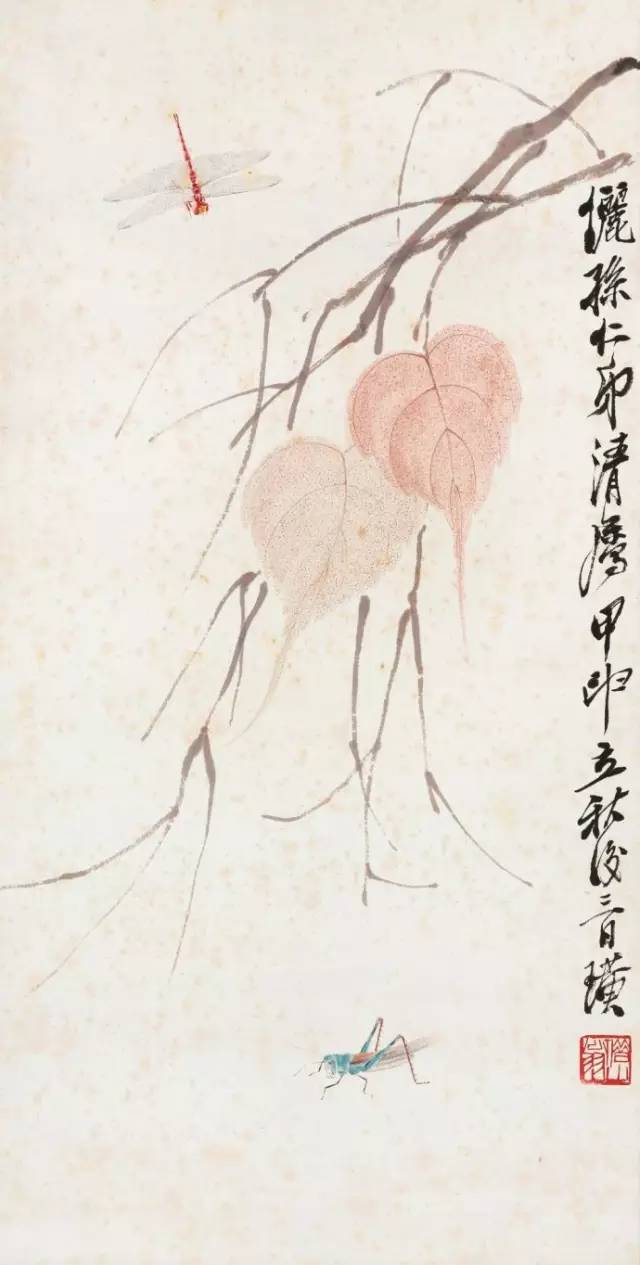 儷孫仁弟清屬甲申立秋後三日璜